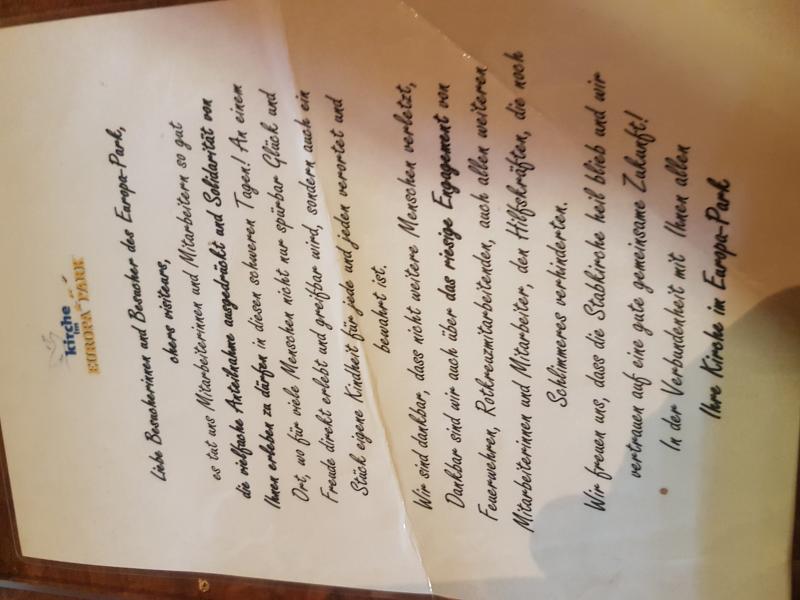 kirche
im
EUROPA PARK
Liebe Besucherinnen und Besucher des Europa-Park,
chers visiteurs,
es tut uns Mitarbeiterinnen und Mitarbeitern so gut
die vielfache Anteilnahme ausgedrückt und Solidarität von
Ihnen erleben zu dürfen in diesen schweren Tagen! An einem
Ort, wo für viele Menschen nicht nur spürbar Glück und
Freude direkt erlebt und greifbar wird, sondern auch ein
Stück eigene Kindheit für jede und jeden verortet und
bewahrt ist.
Wir sind dankbar, dass nicht weitere Menschen verletzt,
Dankbar sind wir auch über das riesige Engagement von
Feuerwehren, Rotkreuzmitarbeitenden, auch allen weiteren
Mitarbeiterinnen und Mitarbeiter, den Hilfskräften, die noch
Schlimmeres verhinderten.
Wir freuen uns, dass die Stabkirche heil blieb und wir
vertrauen auf eine gute gemeinsame Zukunft!
In der Verbundenheit mit Ihnen allen
Ihre Kirche im Europa-Park